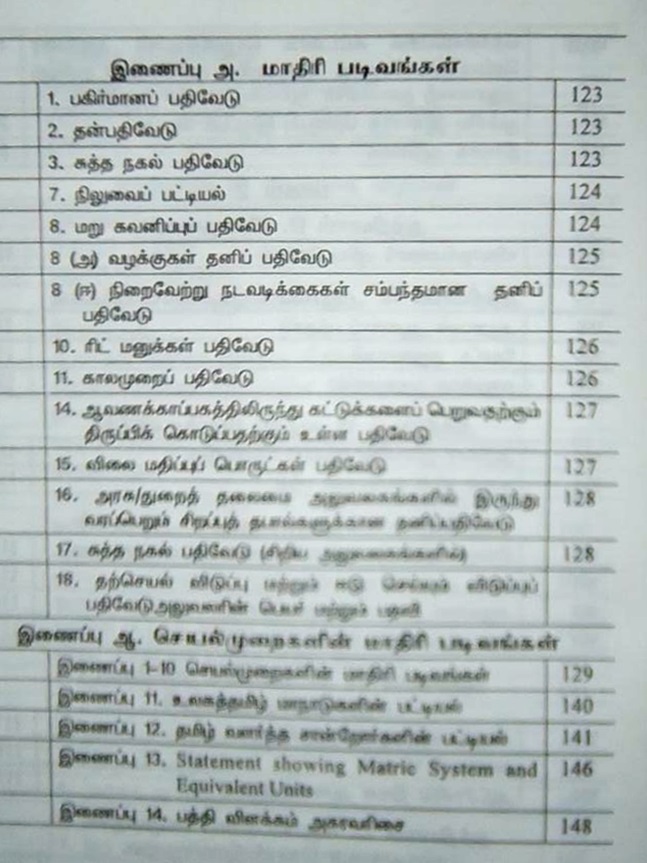 இணைப்பு அ. மாதிரி படிவங்கள்
1. பகிர்மானப் பதிவேடு 123
2. தன்பதிவேடு 123
3. சுத்த நகல் பதிவேடு 123
7. நிலுவைப் பட்டியல் 124
8. மறு கவனிப்புப் பதிவேடு 124
8 (அ) வழக்குகள் தனிப் பதிவேடு 125
8 (ஈ) நிறைவேற்று நடவடிக்கைகள் சம்பந்தமான தனிப் 125
பதிவேடு
10. ரிட் மனுக்கள் பதிவேடு 126
11. காலமுறைப் பதிவேடு 126
14. ஆவணக்காப்பகத்திலிருந்து கட்டுக்களைப் பெறுவதற்கும் 127
திருப்பிக் கொடுப்பதற்கும் உள்ள பதிவேடு
15. விலை மதிப்புப் பொருட்கள் பதிவேடு 127
16. அரசு/துறைத் தலைமை அலுவலகங்களில் இருந்து 128
வரப்பெறும் சிறப்புத் தபால்களுக்கான தனிப்பதிவேடு
17. சுத்த நகல் பதிவேடு (சிறிய அலுவலகங்களில்) 128
18. தற்செயல் விடுப்பு மற்றும் ஈடு செய்யும் விடுப்புப்
பதிவேடு அலுவலரின் பெயர் மற்றும் பதவி
இணைப்பு ஆ. செயல்முறைகளின் மாதிரி படிவங்கள்
இணைப்பு 1-10 செயல்முறைகளின் மாதிரி படிவங்கள் 129
இணைப்பு 11. உலகத்தமிழ் மாநாடுகளின் பட்டியல் 140
இணைப்பு 12. தமிழ் வளர்த்த சான்றோர்களின் பட்டியல் 141
இணைப்பு 13. Statement showing Matric System and 146
Equivalent Units
இணைப்பு 14. பத்தி விளக்கம் அகரவரிசை 148